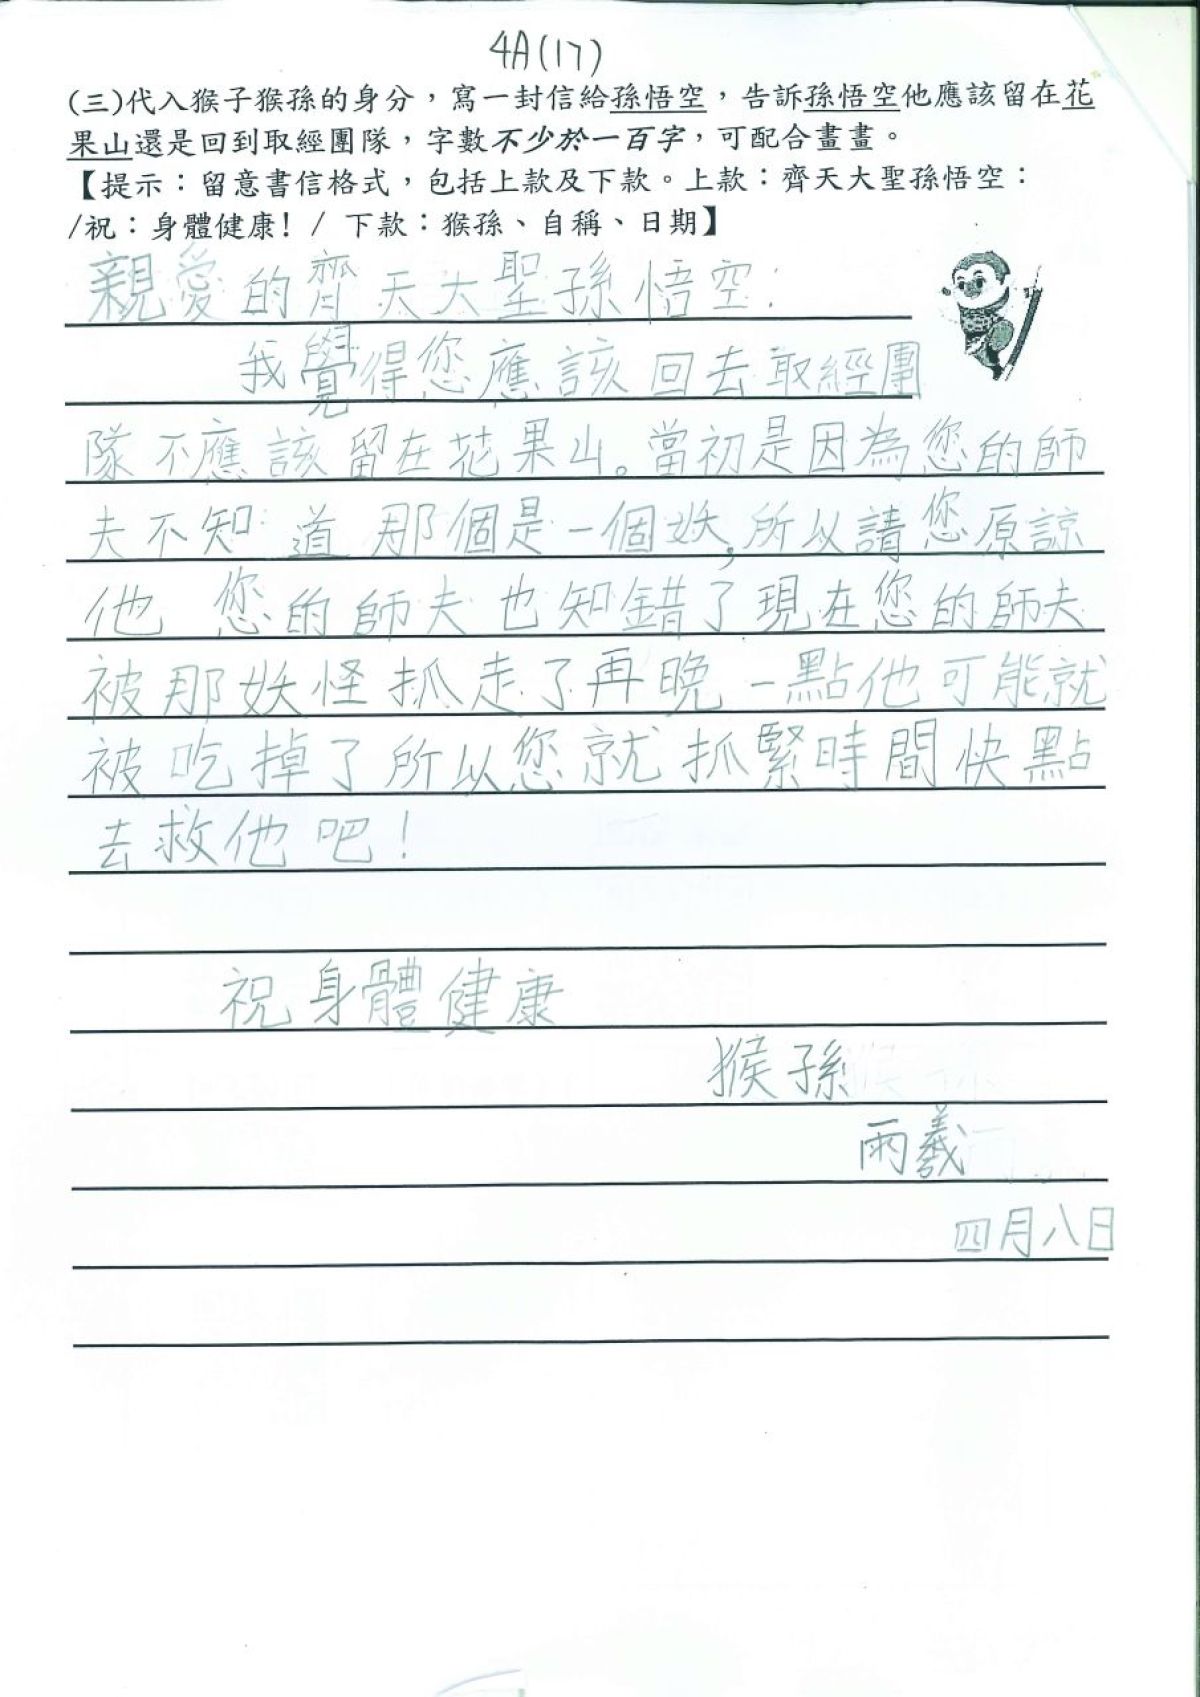 4A(17)
(三)代入猴子猴孫的身分，寫一封信給孫悟空，告訴孫悟空他應該留在花
果山還是回到取經團隊，字數不少於一百字，可配合畫畫。
【提示：留意書信格式，包括上款及下款。上款：齊天大聖孫悟空：
/祝：身體健康! / 下款：猴孫、自稱、日期】
親愛的齊天大聖孫悟空：
我覺得您應該回去取經團
隊不應該留在花果山。當初是因為您的師
夫不知道那個是一個妖，所以請您原諒
他 您的師夫也知錯了現在您的師夫
被那妖怪抓走了再晚一點他可能就
被吃掉了所以您就抓緊時間快點
去救他吧！
祝身體健康
猴孫
雨羲
四月八日